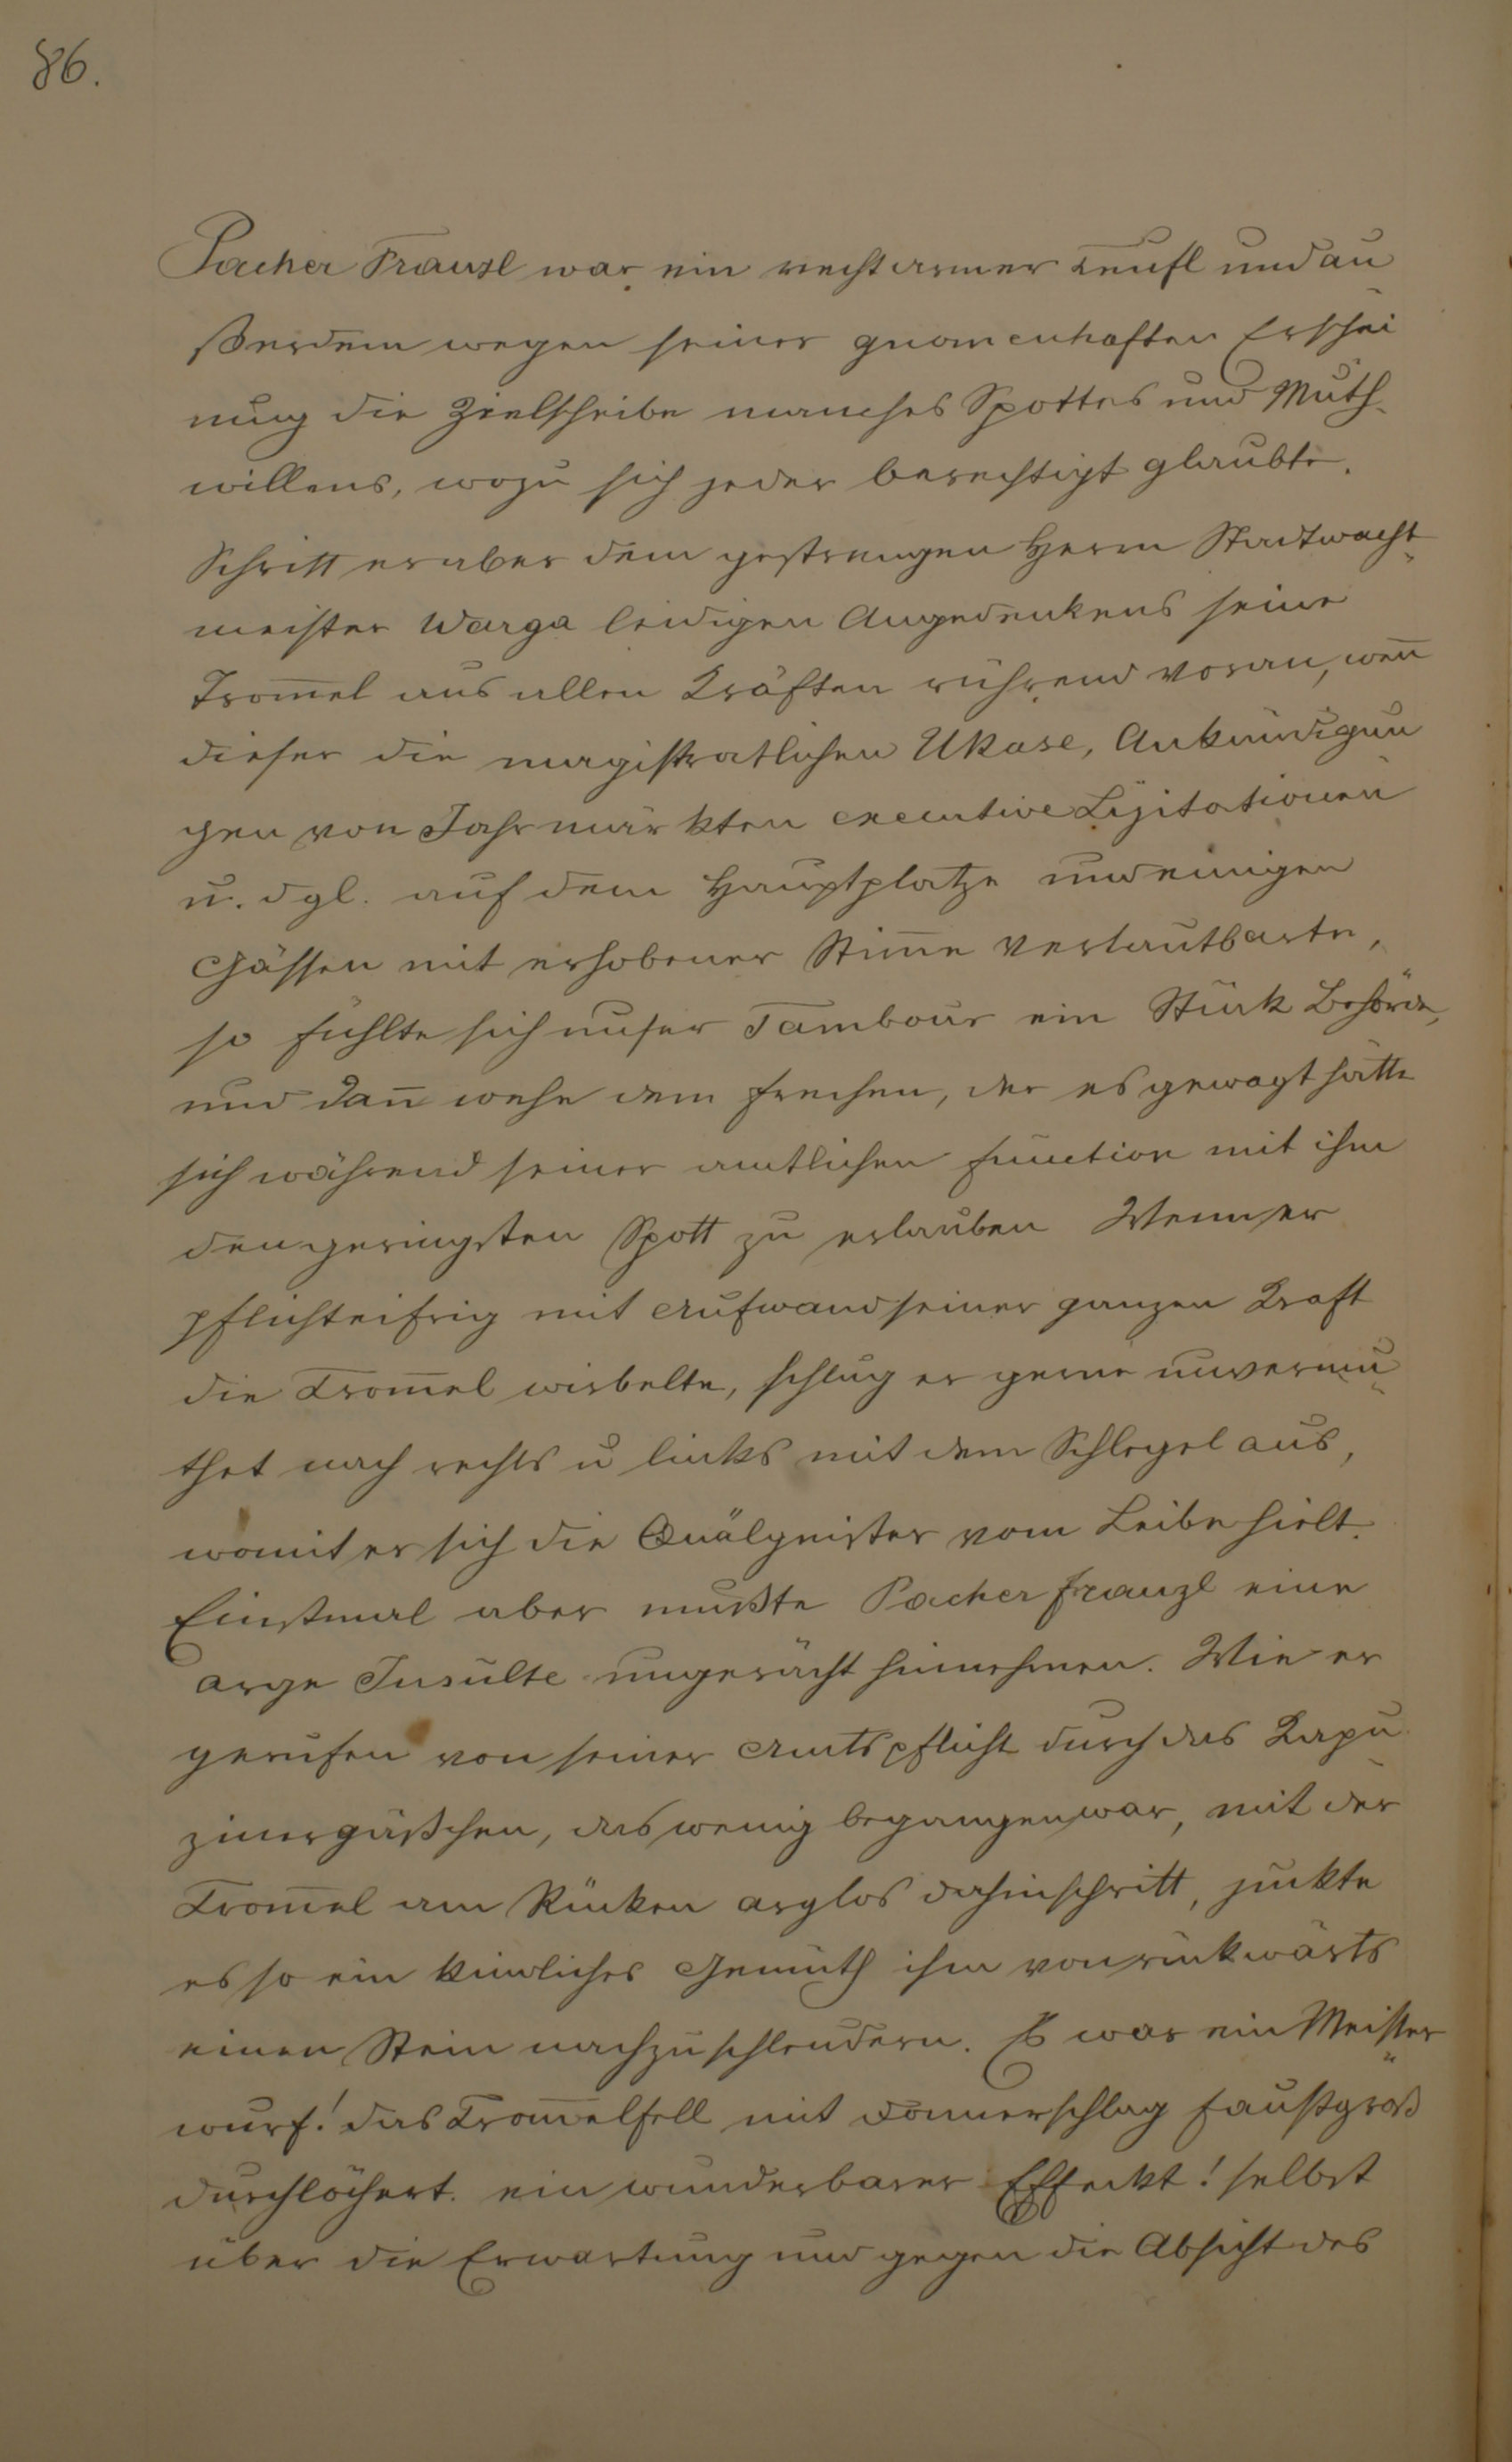 86.
Pacher Franzl war ein recht armer Teufl und au
ßerdem wegen seiner gnomenhaften Erschei
nung die Zielscheibe manches Spottes und Muth-
willens, wozu sich jeder berechtigt glaubte.
Schritt er aber dem gestrengen Herrn Stadtwacht-
meister Warga leidigen Angedenkens seine
Trom̅el aus allen Kräften rührend voran, wen̅
dieser die magistratlichen Ukase, Ankündigun
gen von Jahrmärkten executive Lizitationen
u. dgl. auf dem Hauptplatze und einigen
Gässen mit erhobener Stim̅e verlautbarte,
so fühlte sich unser Tambour ein Stück Behörde,
und dan̅ wehe dem frechen, der es gewagt hätte
sich während seiner amtlichen function mit ihm
den geringsten Spott zu erlauben Wenn er
pflichteifrig mit Aufwand seiner ganzen Kraft
die Trom̅el wirbelte, schlug er gerne unvermu-
thet nach rechts u links mit dem Schlegel aus,
womit er sich die Quälgeister vom Leibe hielt.
Einstmal aber mußte Pacher Franzl eine
arge Insulte ungerächt hinnehmen. Wie er
gerufen von seiner Amtspflicht durch das Kapu
zinergäßchen, das wenig begangen war, mit der
Trom̅el am Rücken arglos dahinschritt, juckte
es so ein kindliches Gemüth ihm von rückwärts
einen Stein nachzuschleudern. Es war ein Meister-
wurf! das Trom̅elfell mit Donnerschlag faustgroß
durchlöchert. ein wunderbarer Effeckt! selbst
über die Erwartung und gegen die Absicht des